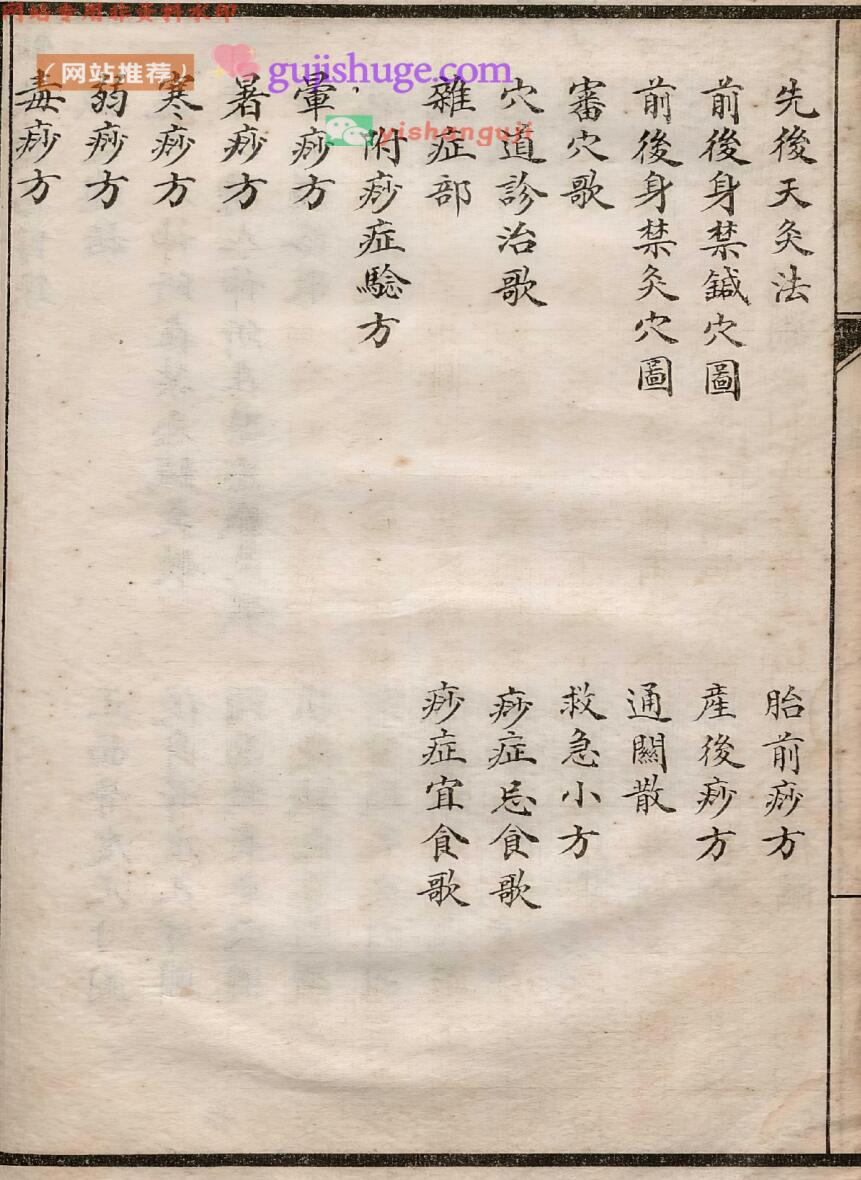 网站专用非资料水印
（网站推荐）
gujishuge.com
yishanguji
先後天灸法
前後身禁鍼穴圖
前後身禁灸穴圖
審穴歌
穴道診治歌
雜症部
附痧症騐方
暈痧方
暑痧方
寒痧方
弱痧方
毒痧方
胎前痧方
産後痧方
通關散
救急小方
痧症忌食歌
痧症宜食歌